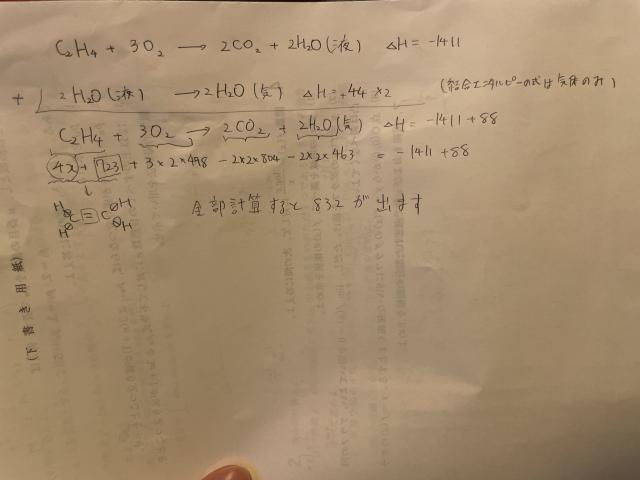 C₂H₄ + 3O₂ → 2CO₂ + 2H₂O(液) ΔH = -1411
+ 2H₂O(液) → 2H₂O(気) ΔH = +44 × 2 (結合エンタルピーの式は気体のみ)
C₂H₄ + 3O₂ → 2CO₂ + 2H₂O(気) ΔH = -1411 + 88
4x + 723 + 3×2×498 - 2×2×804 - 2×2×463 = -1411 + 88
H H
C = C
H H
全部計算すると 832 が出ます
(下書き用紙)